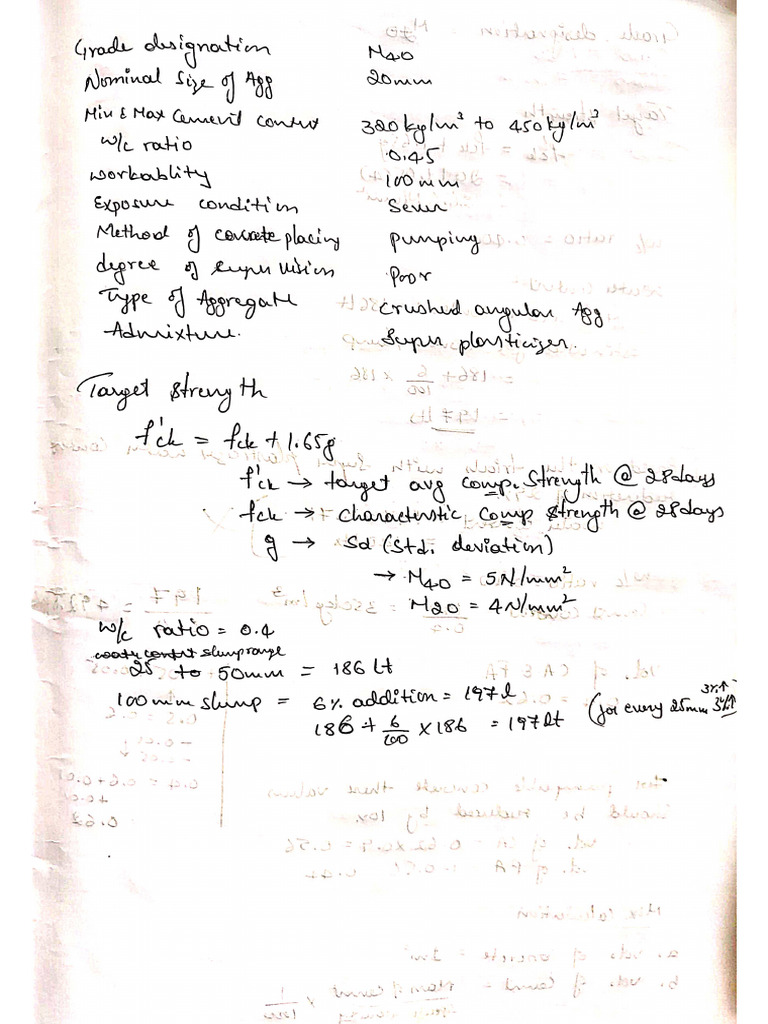 Grade designation M40
Nominal Size of Agg 20mm
Min & Max Cement content 320kg/m³ to 450kg/m³
w/c ratio 0.45
Workablity 100mm
Exposure condition Sever
Method of concrete placing Pumping
degree of supervision Poor
Type of Aggregate Crushed angular Agg
Admixture. Super plasticizer.
Target Strength
f'ck = fck + 1.65g
f'ck → target avg comp. Strength @ 28days
fck → characteristic comp strength @ 28days
g → Sd (Std. deviation)
→ M40 = 5N/mm²
M20 = 4N/mm²
w/c ratio = 0.4
water content slump range
25 to 50mm = 186 Lt
100mm slump = 6% addition = 197l
186 + 6/100 × 186 = 197lt (for every 25mm 3%↑)
3%↑